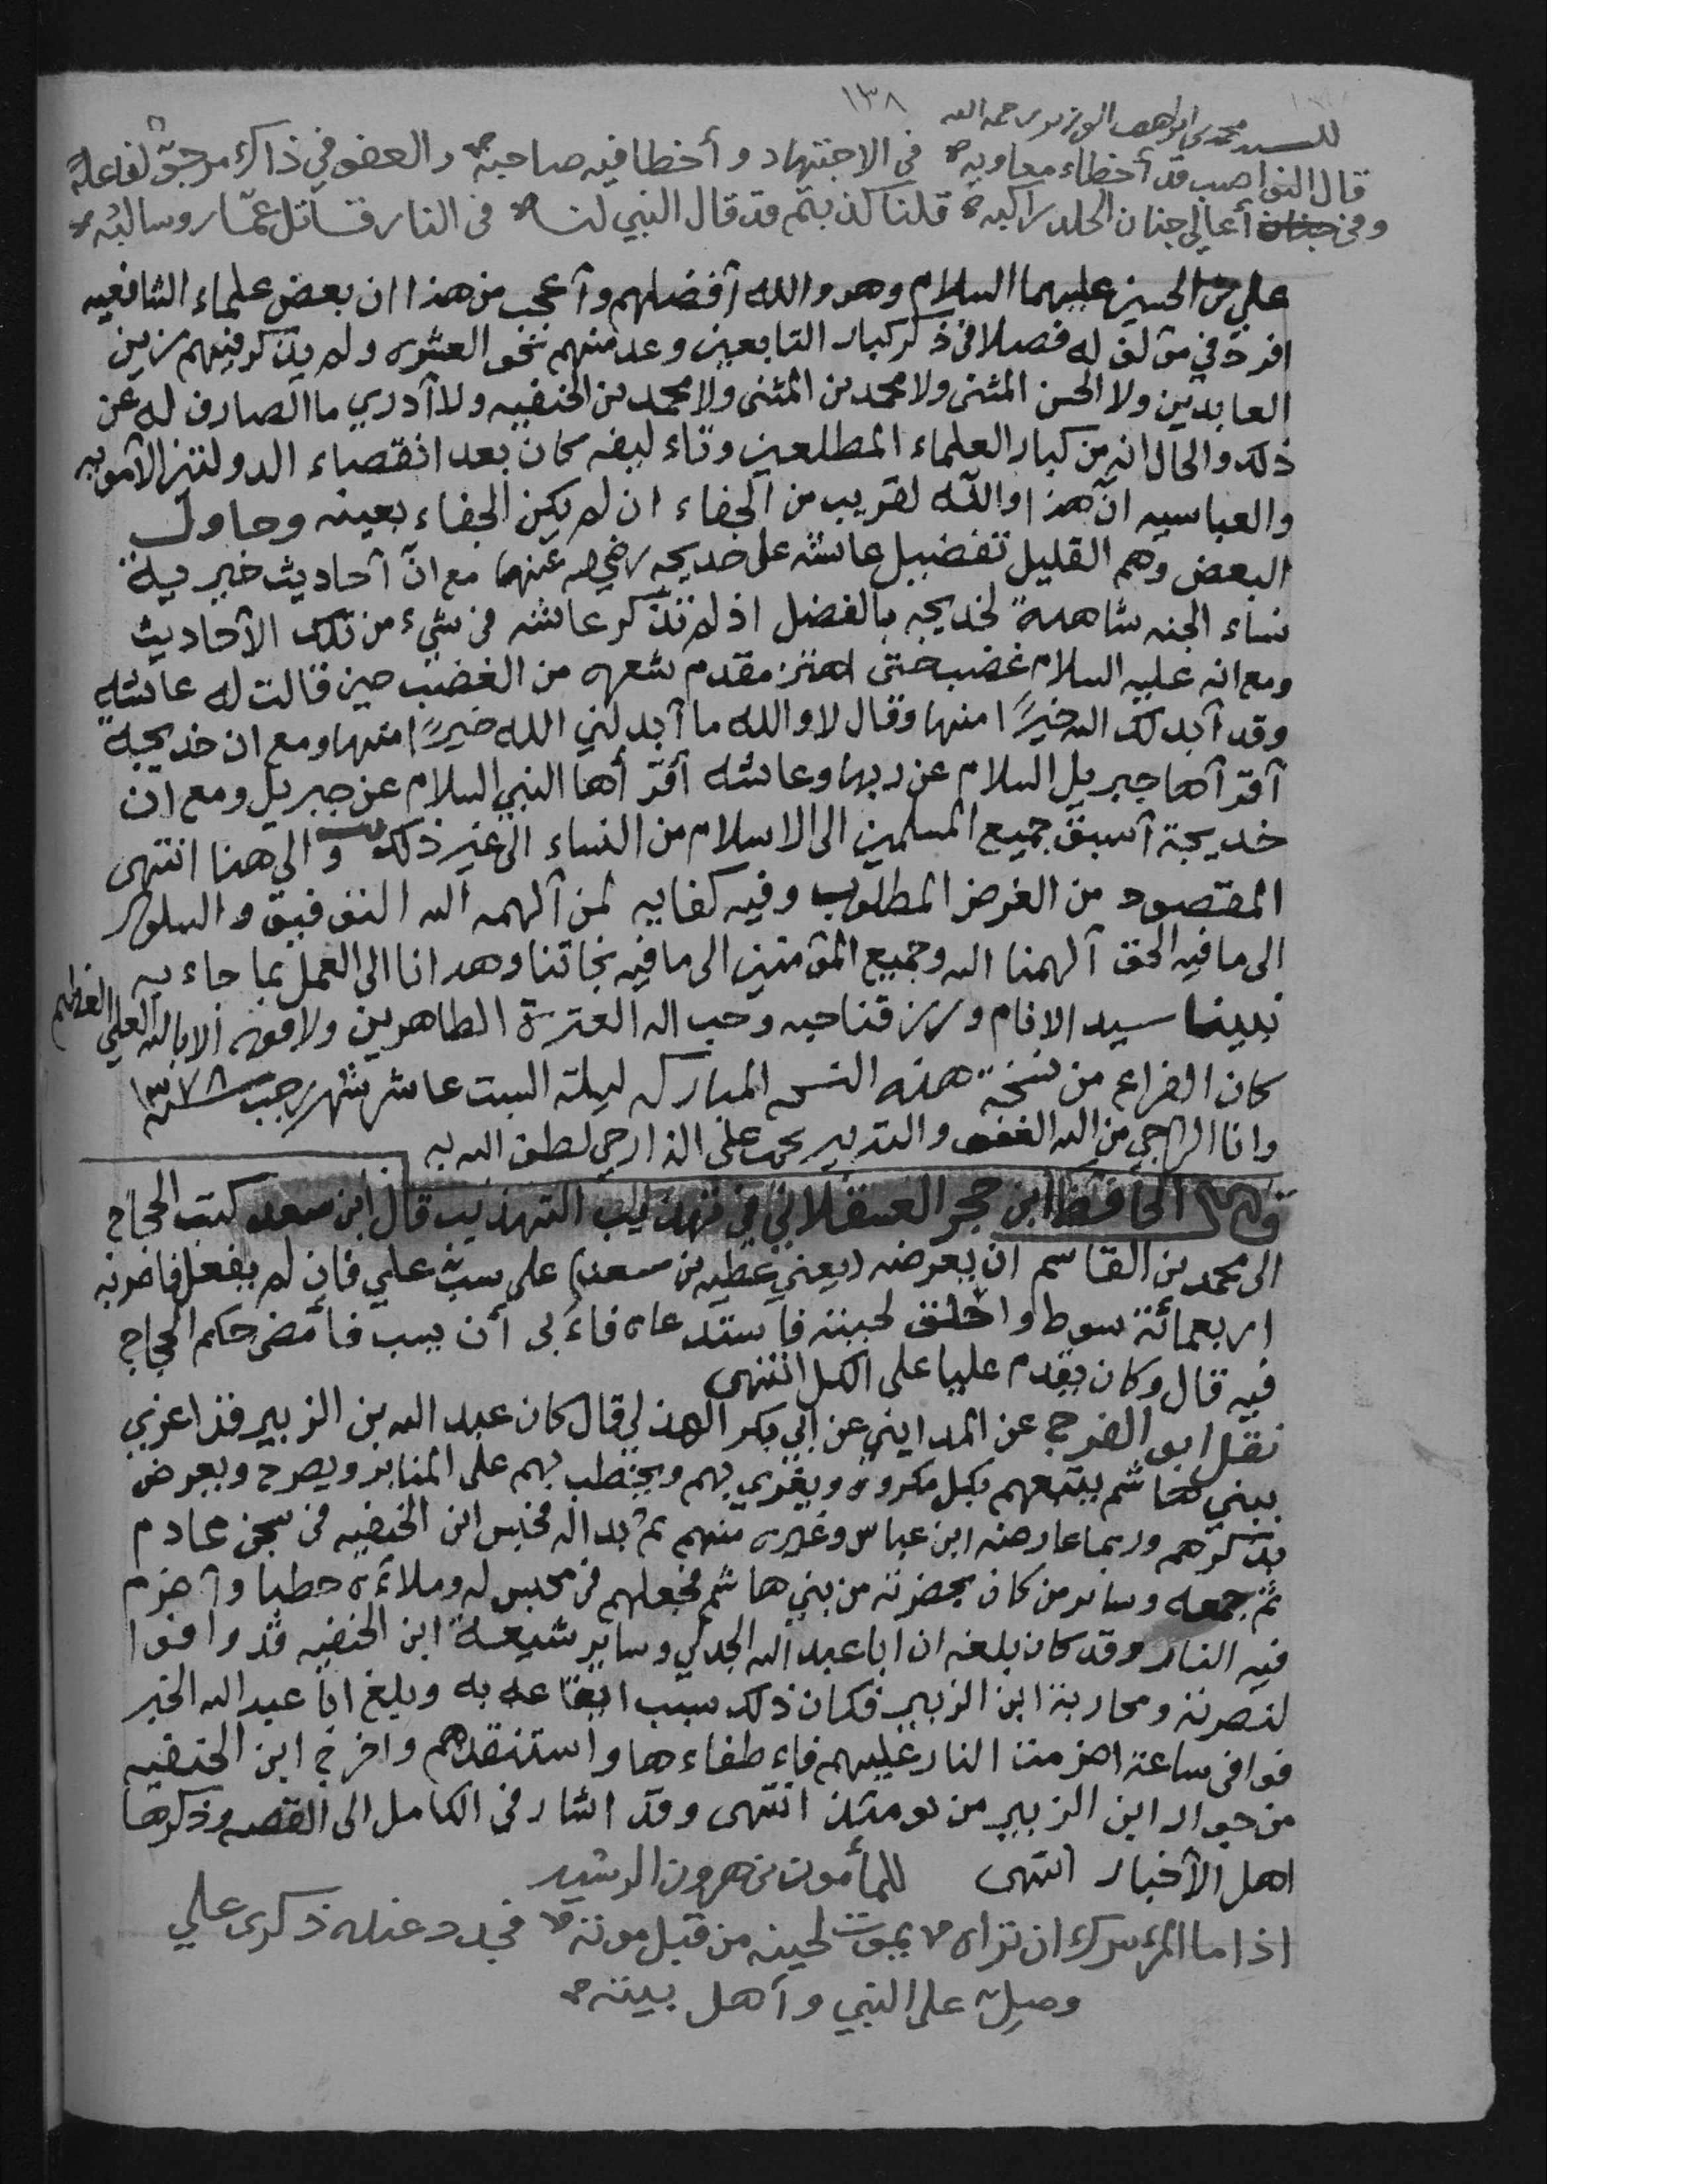 ١٣٨
للسيد محمد بن ابراهيم الوزير رحمه الله
قال النواصب قد أخطاء معاويه في الاجتهاد وأخطا فيه صاحبه والعفو في ذاك مرجوّ لفاعله
وفي أعالي جنان الخلد راكبه قلنا كذبتم قد قال النبي لنا في النار قاتل عمّار وسالبُه
علي بن الحسين عليهما السلام وهو والله أفضلهم وأعجب من هذا ان بعض علماء الشافعيه
افرد في مؤلف له فصلا في ذكر كبار التابعين وعد منهم نحو العشره ولم يذكر فيهم زين
العابدين ولا الحسن المثنى ولا محمد بن المثنى ولا محمد بن الحنفيه ولا أدري ما الصارف له عن
ذلك والحال انه من كبار العلماء المطلعين وتاءليفه كان بعد انقضاء الدولتين الأمويه
والعباسيه انّ هذا والله لقريب من الجفاء ان لم يكن الجفاء بعينه وحاول
البعض وهم القليل تفضيل عائشه على خديجه رضي الله عنهما مع انّ أحاديث خيرية
نساء الجنه شاهدة لخديجه بالفضل اذ لم تذكر عائشه في شيء من تلك الأحاديث
ومع انه عليه السلام غضب حتى اهتز مقدم شعره من الغضب حين قالت له عائشه
وقد أبدلك الله خيرًا منها وقال لا والله ما أبدلني الله خيرًا منها ومع ان خديجة
أقرأها جبريل السلام عن ربها وعائشه أقرأها النبي السلام عن جبريل ومع ان
خديجة أسبق جميع المسلمين الى الاسلام من النساء الى غير ذلك والى هنا انتهى
المقصود من الغرض المطلوب وفيه كفايه لمن ألهمه الله التوفيق والسلوك
الى ما فيه الحق ألهمنا الله وجميع المؤمنين الى ما فيه نجاتنا وهدانا الى العمل بما جاء به
نبينا سيد الانام ورزقنا حبه وحب اله العترة الطاهرين ولا قوه الا بالله العلي العظيم
كان الفراع من نسخة هذه النسخه المباركه ليلة السبت عاشر شهر رجب سنة ١٣٧٨
وانا الراجي من الله العفو لطف الله به
قال الحافظ ابن حجر العسقلاني في تهذيب التهذيب قال ابن سعد كتب الحجاج
الى محمد بن القاسم ان يعرضه (يعني عطيه بن سعد) على سبّ علي فان لم يفعل فاضربه
اربعمائة سوط واحلق لحيته فاستدعاه فاءبى أن يسب فأمضى حكم الحجاج
فيه قال وكان يقدم عليا على الكل انتهى
نقل ابو الفرج عن المدايني عن ابي بكر الهذلي قال كان عبد الله بن الزبير قد اغري
ببني هاشم يتبعهم بكل مكروه ويغري بهم ويخطب بهم على المنابر ويصرح ويعرض
بذكرهم وربما عارضه ابن عباس وغيره منهم ثم بدا له فحبس ابن الحنفيه في سجن عارم
ثم جمعه وسائر من كان بحضرته من بني هاشم فجعلهم في محبس له وملاءه حطبا وأضرم
فيه النار وقد كان بلغه ان ابا عبد الله الجدلي وسائر شيعة ابن الحنفيه قد وافوا
لنصرته ومحاربة ابن الزبير فكان ذلك سبب ايقاعه به وبلغ ابا عبد الله الخبر
فوافى ساعة اضرمت النار عليهم فاءطفاءها واستنقذهم واخرج ابن الحنفيه
من جوار ابن الزبير من يومئذ انتهى وقد اشار في الكامل الى القصه وذكرها
اهل الأخبار انتهى للمأمون بن هرون الرشيد
اذا ما المرء سرك ان تراه يموت لحينه من قبل موته فجدد عنده ذكرى علي
وصلّ على النبي وأهل بيته